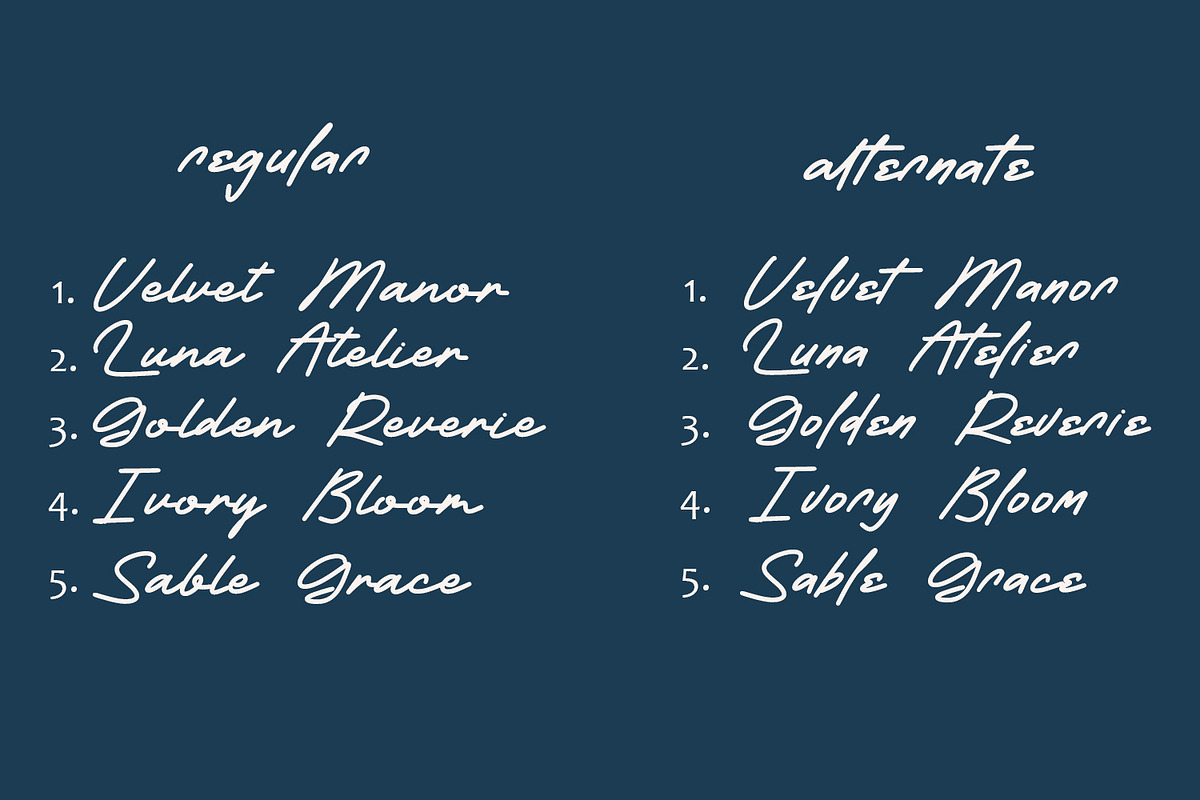 regular
1. Velvet Manor
2. Luna Atelier
3. Golden Reverie
4. Ivory Bloom
5. Sable Grace
alternate
1. Velvet Manor
2. Luna Atelier
3. Golden Reverie
4. Ivory Bloom
5. Sable Grace